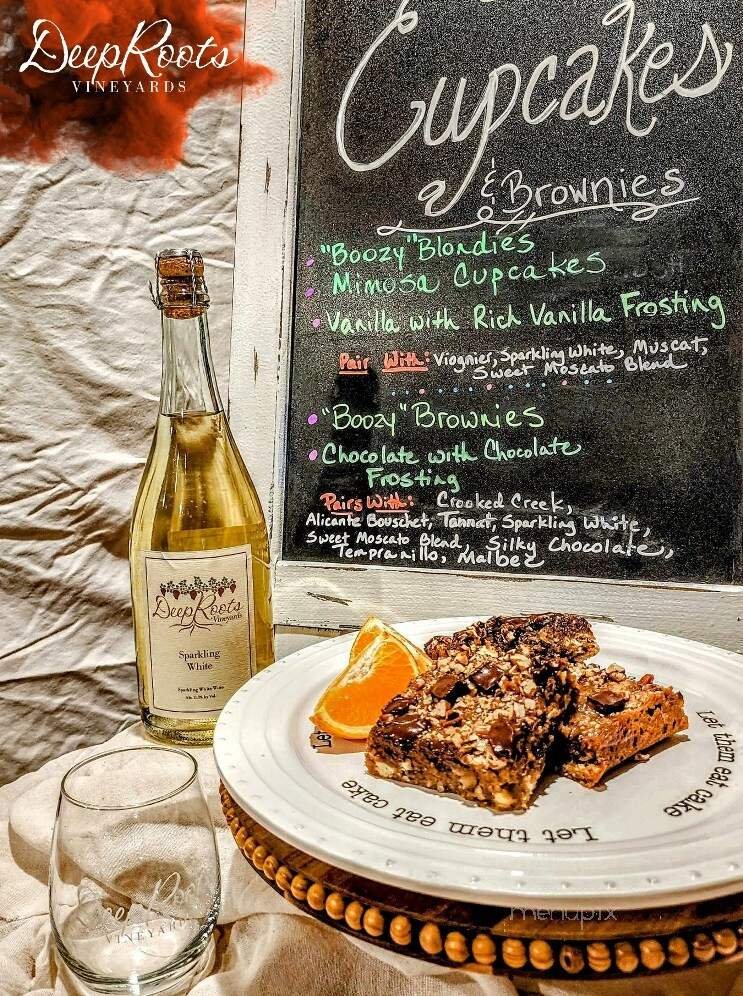 DeepRoots
VINEYARDS
Cupcakes
& Brownies
• "Boozy" Blondies
• Mimosa Cupcakes
• Vanilla with Rich Vanilla Frosting
Pair With: Viognier, Sparkling White, Muscat,
Sweet Moscato Blend
• "Boozy" Brownies
• Chocolate with Chocolate
Frosting
Pairs With: Crooked Creek,
Alicante Bouschet, Tannat, Sparkling White,
Sweet Moscato Blend, Silky Chocolate,,
Tempranillo, Malbec
DeepRoots
Vineyards
Sparkling
White
Sparkling White Wine
Let them eat cake
Let them eat cake
Let
DeepRoots
VINEYARDS
menupix